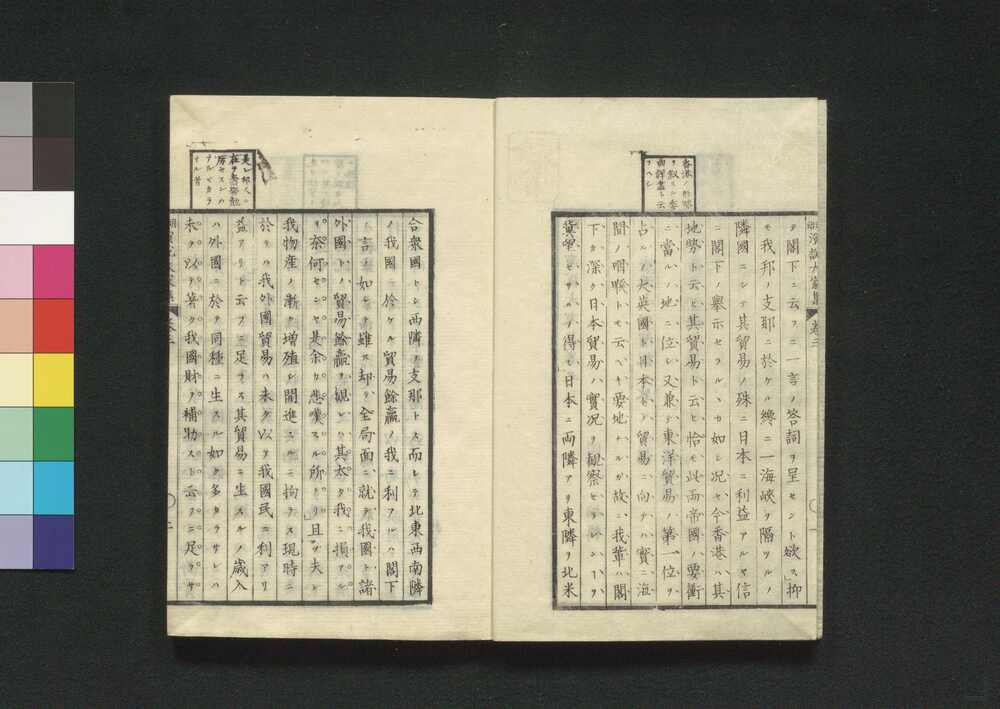 香港ノ形勢
ヲ叙スル寔
ニ詳盡ト云
ヲヘシ
演説大家集 卷二
ヲ閣下ニ云フニ一言ノ答詞ヲ呈セント欲ス」抑
モ我邦ノ支那ニ於ケル纔ニ一海峽ヲ隔ツルノ
隣國ニシテ其貿易ノ殊ニ日本ニ利益アルヤ信
ニ閣下ノ擧示セラルヽカ如シ况ヤ今香港ハ其
地勢ト云ヒ其貿易ト云ヒ恰モ此両帝國ノ要衝
ニ當ルノ地ニ位シ又兼テ東洋貿易ノ第一位ヲ
占ルノ大英國ト日本トノ貿易ニ向テハ實ニ海
間ノ咽喉トモ云ヘキ要地ナルカ故ニ我輩ハ閣
下カ深ク日本貿易ノ實况ヲ観察セラレンコヲ
冀望セサルヲ得ス日本ニ両隣アリ東隣ヲ北米
是レ邦人ニ
在テ
ナル者
合衆國トシ西隣ヲ支那トス而シテ北東西南隣
ノ我國ニ於ケル貿易餘贏ノ我ニ利アルハ閣下
ノ言ノ如シト雖ス却テ全局面ニ就テ我國ト諸
外國トノ貿易餘贏ヲ観レハ其太タ我ニ損アル
ヲ奈何センヤ是余カ悲嘆スル所ナリ」且ツ夫レ
我物産ノ漸ク増殖シ開進スルニ拘ラス現時ニ
於テハ我外國貿易ハ未タ以テ我國民ニ利アリ
益アリト云フニ足ラス其貿易ニ生スルノ歳入
ハ外國ニ於テ同種ニ生スル如ク多カラサレハ
未タ以テ著ク我國財ヲ補助スト云フニ足ラサ